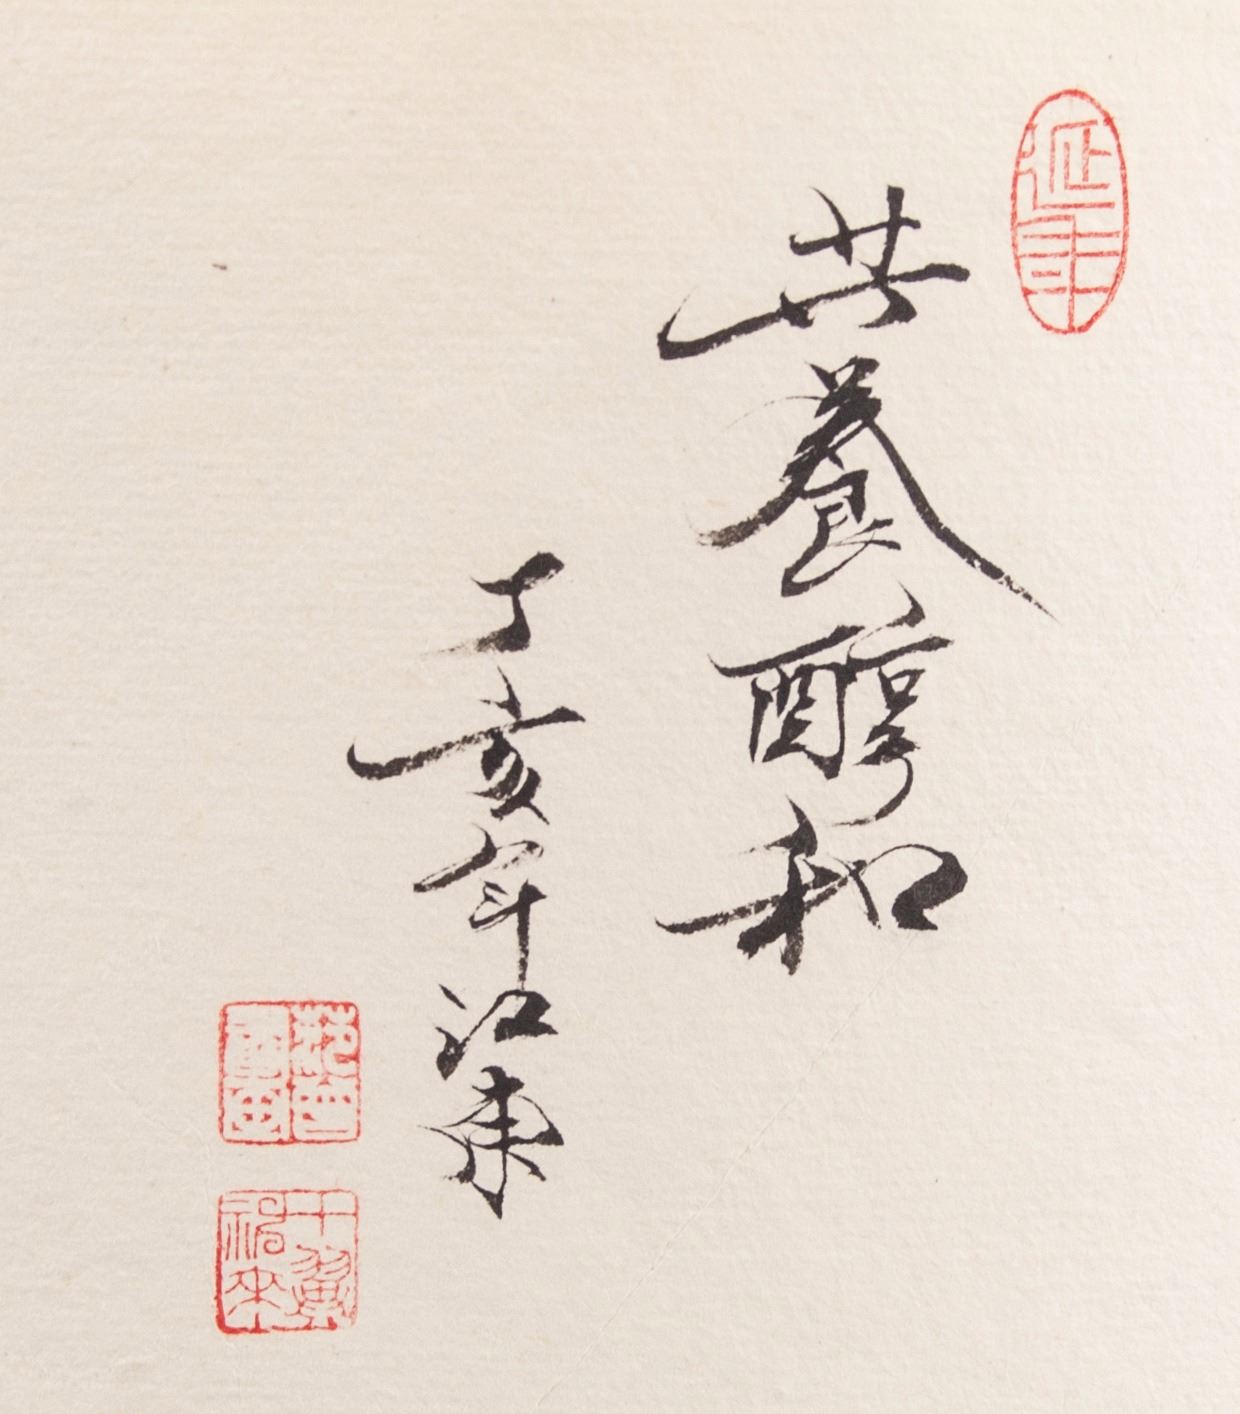 延年
共養醇和
丁亥年江東